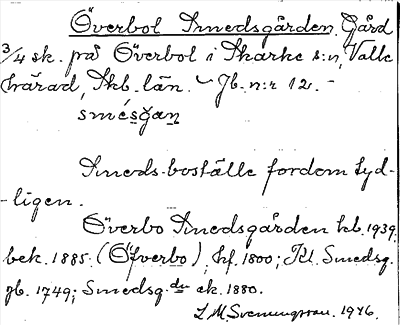 Överbol Smedsgården, Gård
3/4 sk. på Överbol i Skarke s:n, Valle
härad, Skb. län. – Jb. n:r 12. –
smésgan
Smeds-boställe fordom tyd-
-ligen.
Överbo Smedsgården kb. 1939,
bek. 1885. (Öfverbo), hf. 1800; Kl. Smedsg.
jb. 1749; Smedsg. de ek. 1880.
L M Svenungsson. 1946.